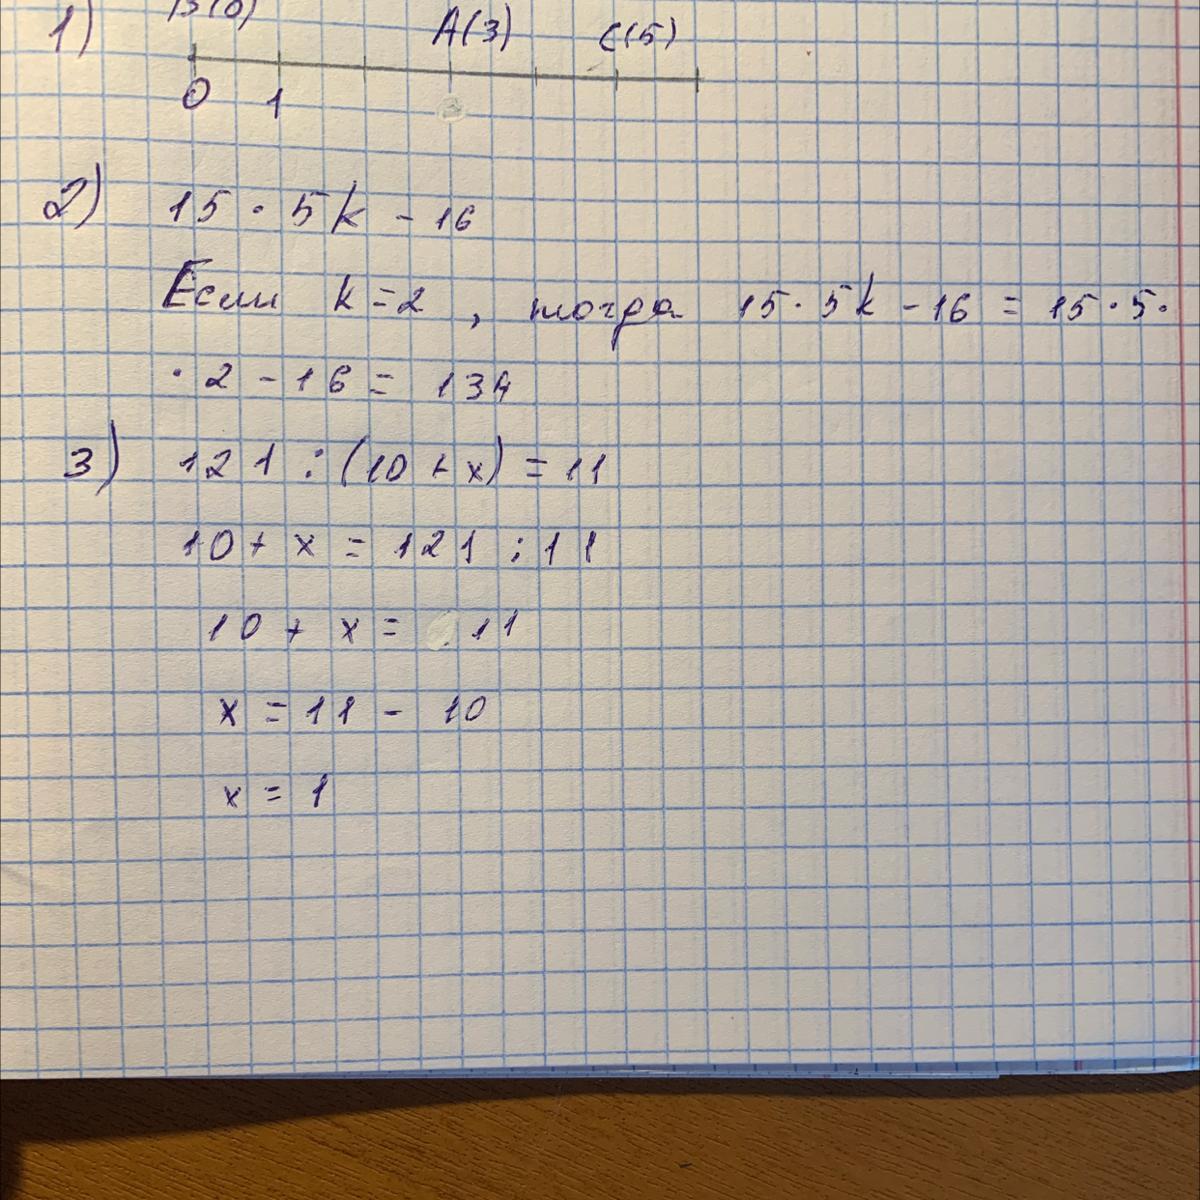 1) B(0) A(3) C(5)
0 1
2) 15 · 5k - 16
Если k = 2 , тогда 15 · 5k - 16 = 15 · 5 ·
· 2 - 16 = 134
3) 121 : (10 + x) = 11
10 + x = 121 : 11
10 + x = 11
x = 11 - 10
x = 1